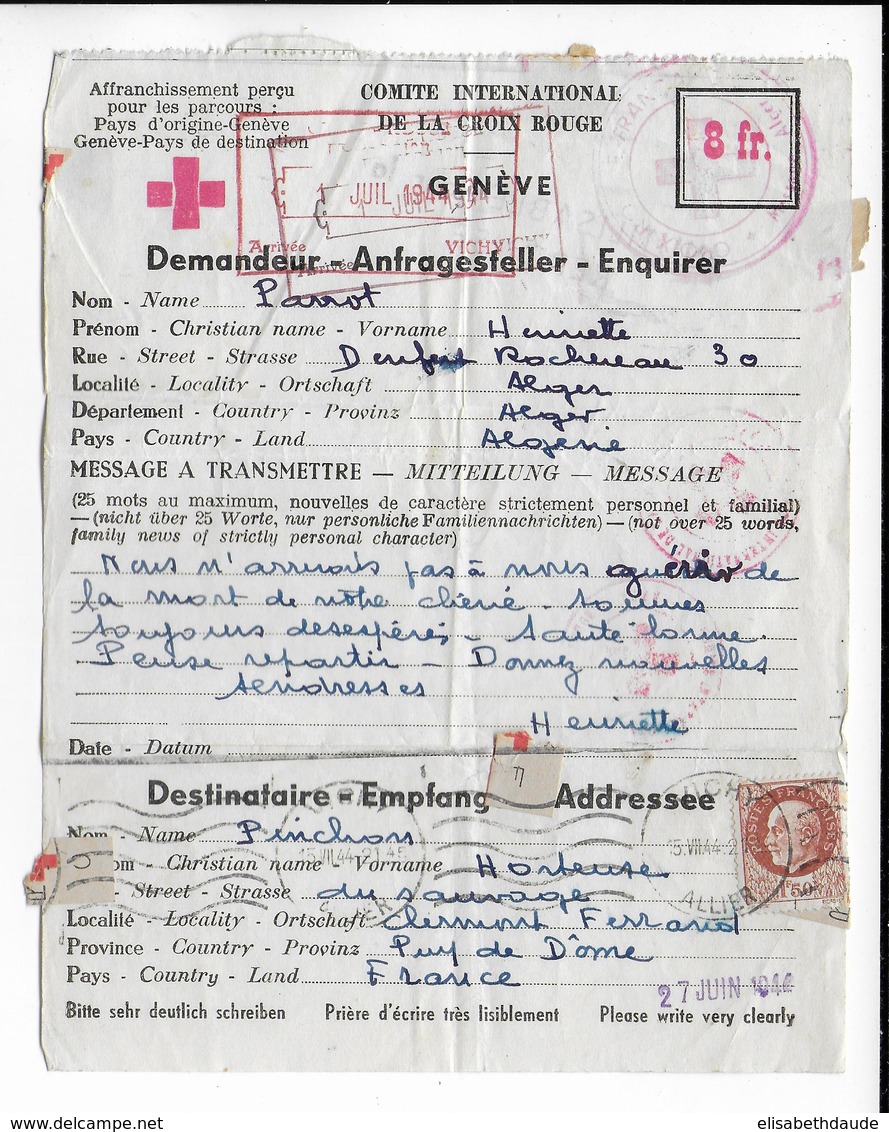 Affranchissement perçu
pour les parcours :
Pays d'origine-Genève
Genève-Pays de destination
COMITE INTERNATIONAL
DE LA CROIX ROUGE
GENÈVE
8 fr.
JUIL 1944
JUIL 1944
Arrivée VICHY
Arrivée VICHY
Demandeur - Anfragesteller - Enquirer
Nom - Name Parrot
Prénom - Christian name - Vorname Henriette
Rue - Street - Strasse Denfert Rochereau 30
Localité - Locality - Ortschaft Alger
Département - Country - Provinz Alger
Pays - Country - Land Algérie
MESSAGE A TRANSMETTRE — MITTEILUNG — MESSAGE
(25 mots au maximum, nouvelles de caractère strictement personnel et familial)
—(nicht über 25 Worte, nur personliche Familiennachrichten)—(not over 25 words,
family news of strictly personal character)
Nous n'arrivons pas à nous guérir de
la mort de notre chérie - sommes
toujours desespérés - Santé bonne.
Pense repartir - Donnez nouvelles
tendresses
Henriette
Date - Datum
Destinataire - Empfang Addressee
Nom - Name Pinchon
nom - Christian name - Vorname Hortense
- Street - Strasse du sauvage
Localité - Locality - Ortschaft Clermont Ferrand
Province - Country - Provinz Puy de Dôme
Pays - Country - Land France
15.VII.44-21 45
ALLIER
15.VII.44-2
ALLIER
POSTES FRANÇAISES
1F50
27 JUIN 1944
Bitte sehr deutlich schreiben Prière d'écrire très lisiblement Please write very clearly
elisabethdaude